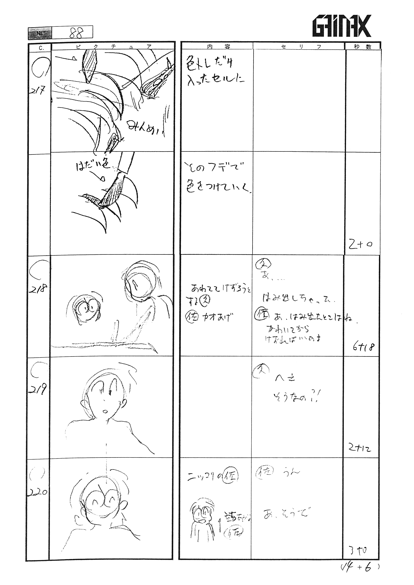 No. 88
GAINAX
C. ピクチュア 内容 セリフ 秒数
217
みんめい
色トレだけ
入ったセルに
はだい色
そのフデで
色をつけていく。
2+0
218
あわててけずろうと
する久
佐 カオあげ
久
あ…
はみ出しちゃった
佐 あ、はみ出たとこはね、
かわいてから
けずればいいのよ
6+18
219
久 へえ
そうなの?!
2+12
220
ニッコリの佐
佐 うん
あ、そうで
3+0
14+6